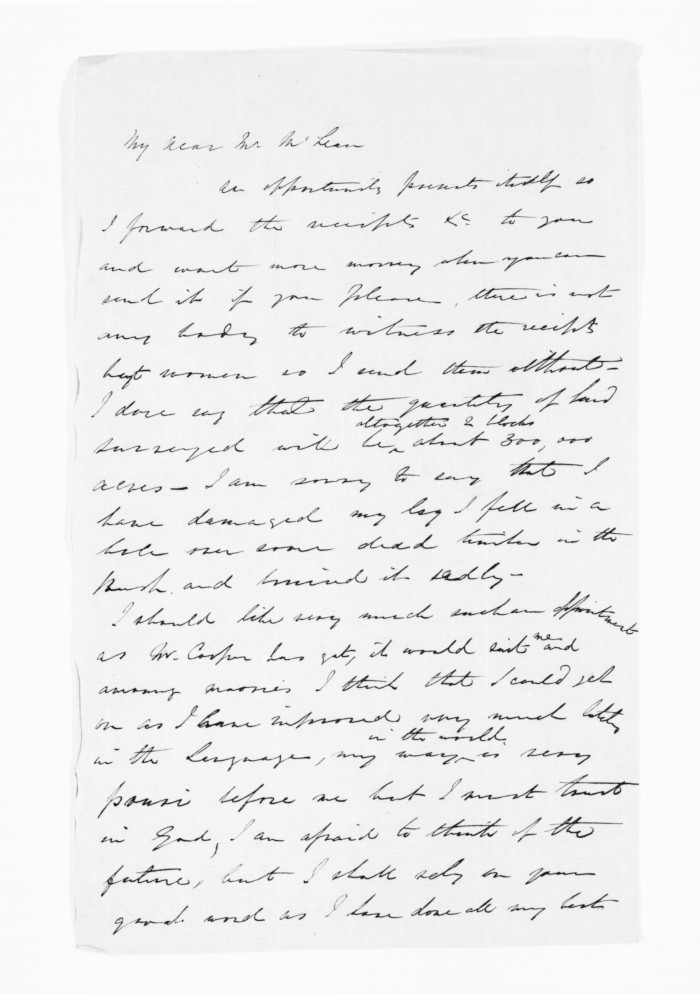 My dear Mr. McLean
an opportunity presents itself so
I forward the receipts &c. to you
and want more money when you can
send it if you please, there is not
any body to witness the receipts
but women so I send them without -
I dare say that the quantity of land
surveyed will be altogether 2 blocks about 300,000
acres - I am sorry to say that I
have damaged my leg I fell in a
hole over some dead timber in the
Bush. and bruised it sadly -
I should like very much such an appointment
as Mr. Cooper has got, it would suit me and
among maories I think that I could get
on as I have improved very much lately
in the Language, my way in the world is very
pouri before me but I must trust
in God, I am afraid to think of the
future, but I shall rely on your
good word as I have done all my best